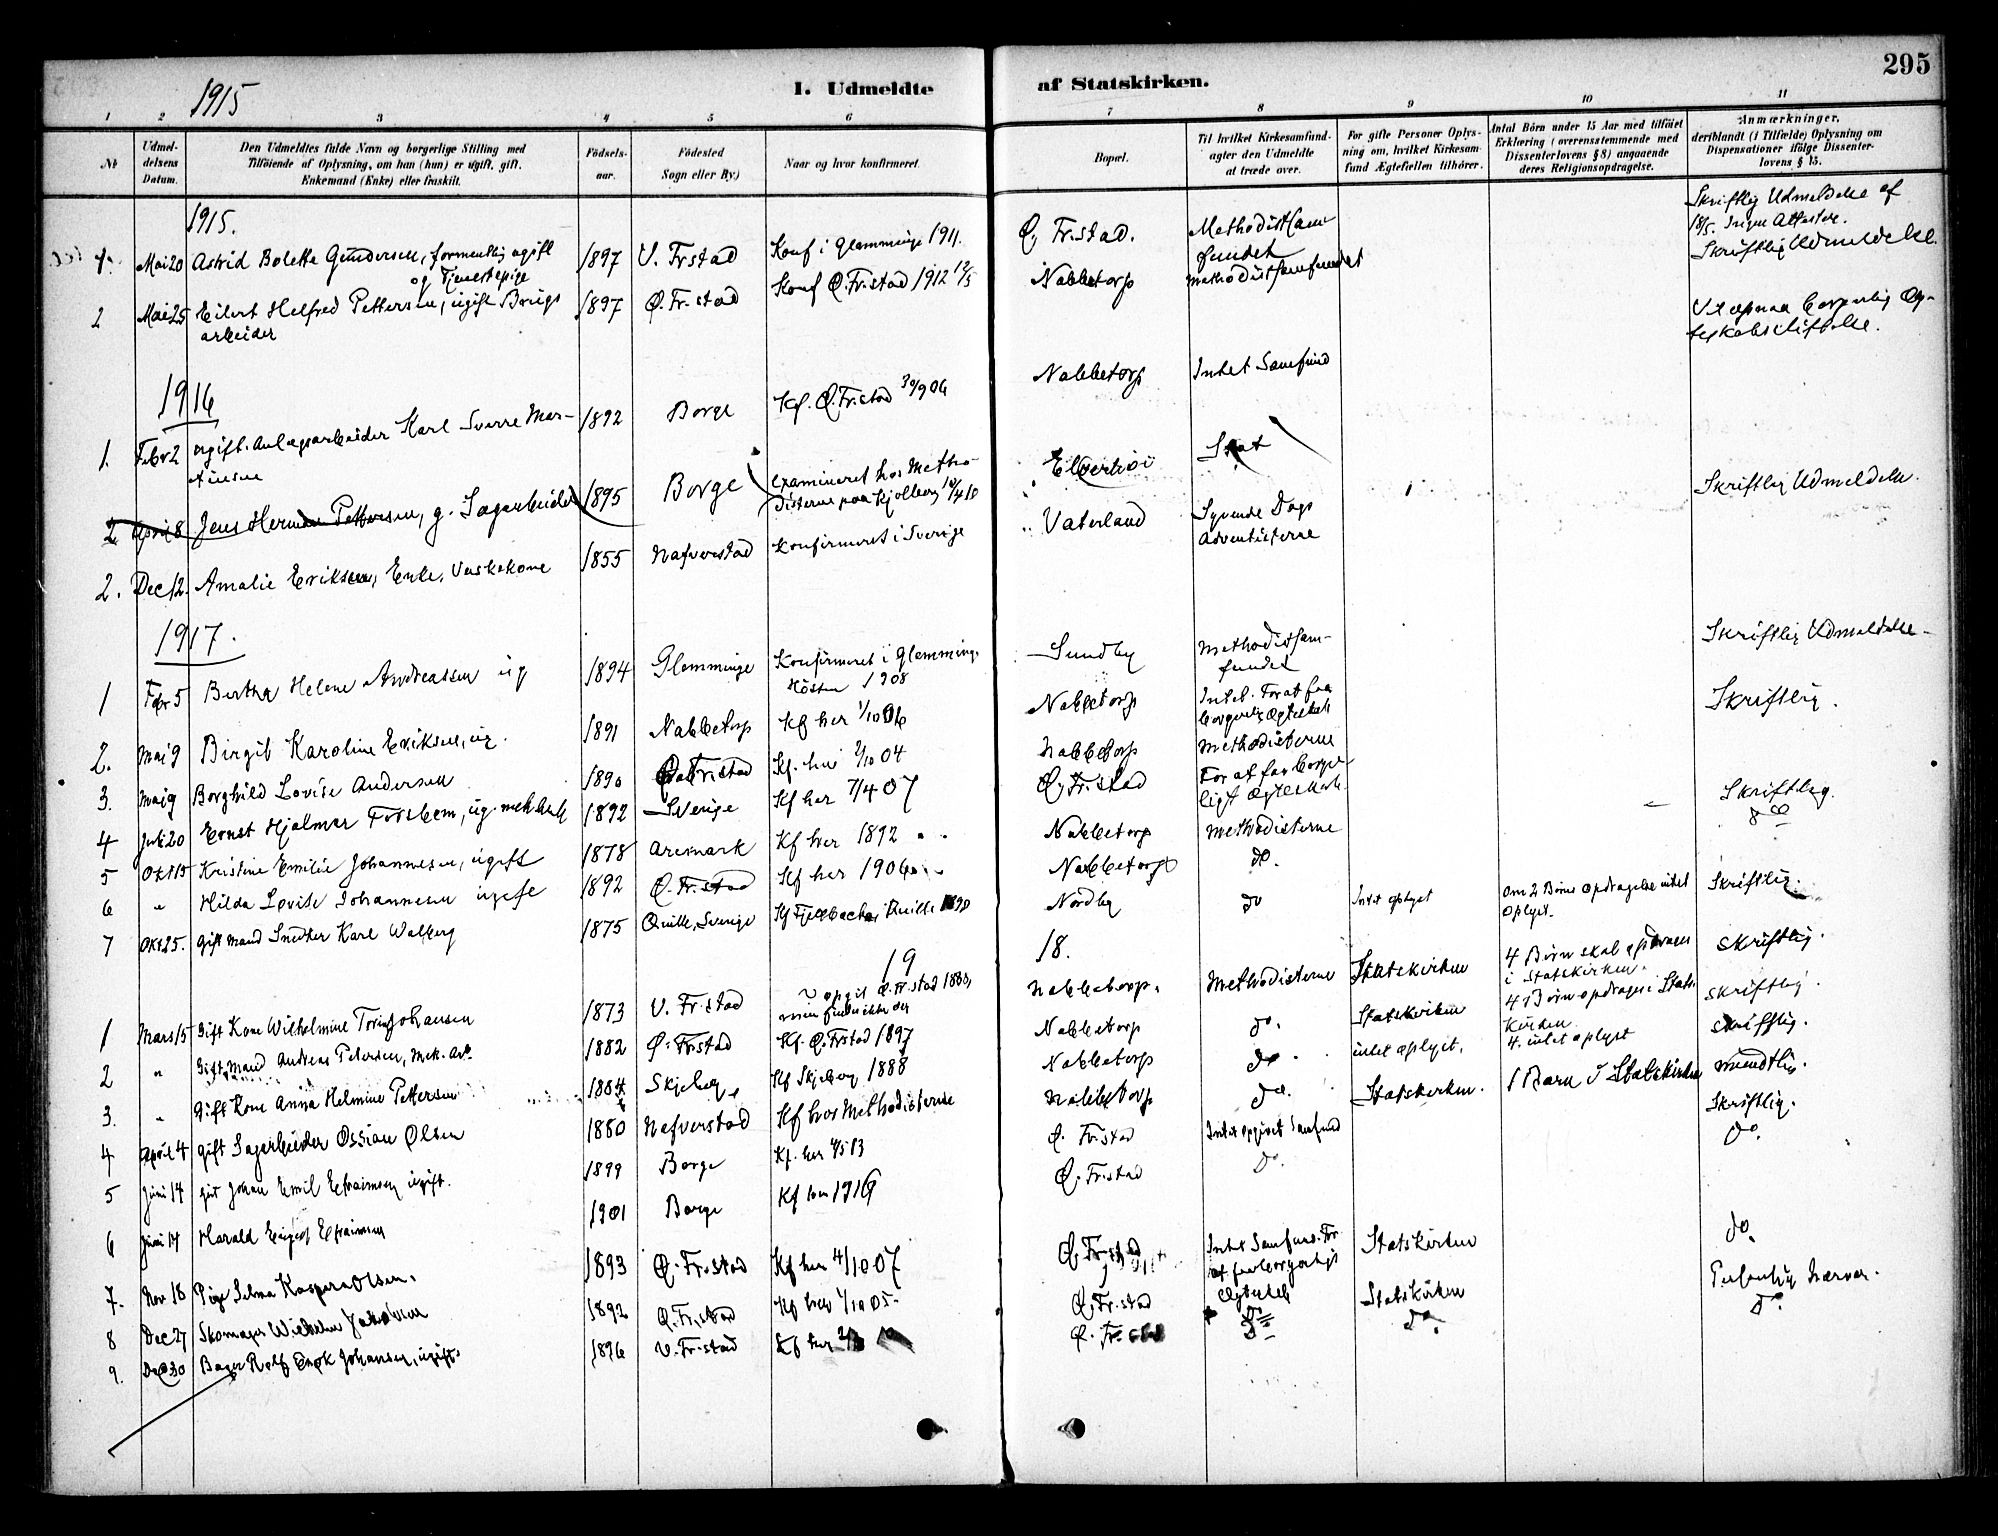 295
1915
1. Udmeldte af Statskirken.
1 2 3 4 5 6 7 8 9 10 11
Nr.
Udmel-
delsens
Datum.
Den Udmeldtes fulde Navn og borgerlige Stilling med
Tilföiende af Oplysning, om han (hun) er ugift, gift,
Enkemand (Enke) eller fraskilt.
Födsels-
aar.
Födested
Sogn eller By.)
Naar og hvor konfirmeret.
Bopæl.
Til hvilket Kirkesamfund-
agter den Udmeldte
at træde over.
For gifte Personer Oplys-
ning om, hvilket Kirkesam-
fund Ægtefællen tilhörer.
Antal Börn under 15 Aar med tilföiet
Erklæring (overensstemmende med
Dissenterlovens § 8) angaaende
deres Religionsopdragelse.
Anmærkninger,
deriblandt (i Tilfælde) Oplysning om
Dispensationer ifölge Dissenter-
lovens § 15.
1915.
1 Mai 20 Astrid Bolette Gundersen, formentlig ugift og Tjenestepige 1897 V. Frstad Konf i Glemminge 1911. Ø. Fr.stad. Methodistsam-fundet Skriftlig Udmeldelse af 18/5. Ingen Attester.
2 Mai 25 Eilert Helfred Pettersen, ugift Brugsarbeider 1897 Ø. Fr.stad Konf Ø. Fr.stad 1912 12/5 Nabbetorp Methodistsamfundet Skriftlig Udmeldelse.
1916
1. Febr 2 ugift. Anlægsarbeider Karl Sverre Mar-tinsen 1892 Borge Kf. Ø. Fr.stad 30/9 06 Nabbetorp Intet Samfund
2 April 8 Jens Herman Pettersen, g. Sagarbeider 1895 Borge examineret hos Metho-disterne paa Kjølberg Stat
2. Dec 12. Amalie Eriksen, Enke, Vaskekone 1855 Nafverstad Konfirmeret i Sverige Vaterland Syvende Dags Adventisterne Skriftlig Udmeldelse.
1917.
1 Febr 5 Bertha Helene Andreassen ug 1894 Glemminge Konfirmeret i Glemminge Høsten 1908 Sundby Methodistsam-fundet Skriftlig Udmeldelse
2. Mai 9 Birgit Karoline Eriksen, ug. 1891 Nabbetorp Kf her 1/10 06 Nabbetorp Intet. For at faa borgerlig Ægteskab Skriftlig.
3. Mai 9 Borghild Lovise Andersen 1890 Ø. Fr.stad Kf. her 2/10 04 Nabbetorp Methodisterne
4 Juli 20 Ernst Hjalmar Forsbem, ug. mek. Arb 1892 Sverige Kf her 7/4 07 Ø. Fr.stad For at faa borger-ligt Ægteskab.
5 Okt 15 Kristine Emilie Johannesen, ugift 1878 Aremark Kf her 1892 Nabbetorp Methodisterne Skriftlig.
6 " Hilda Lovise Johannesen ugift 1892 Ø. Fr.stad Kf her 1906 Nabbetorp do. do
7 Okt 25. gift Mand Snedker Karl Walberg 1875 Quille, Sverige Kf Fjelbacka i Quille Nordby do Intet oplyst Om 2 Børns opdragelse intet oplyst. Skriftlig.
19 18.
1 Mars 15 Gift Kone Wilhelmine Johansen 1873 V. Fr.stad Nabbetorp. Methodisterne Statskirken 4 Børn skal opdrages i Statskirken. Skriftlig.
2 " Gift Mand Andreas Petersen, Mek. Arb. 1882 Ø. Fr.stad Kf. Ø. Frstad 1897 Nabbetorp do. Statskirken 4 Børn opdrages i Statskirken Skriftlig.
3. " Gift Kone Anna Helmine Pettersen 1884 Skjeberg Kf Skjeberg 1888 Nabbetorp do. intet oplyst. 4. intet oplyst Skriftlig.
4 April 4 gift Sagarbeider Ossian Olsen 1880 Nafverstad Kf hos Methodisterne Nabbetorp do. Statskirken. 1 Barn i Statskirken mundtlig.
5 Juni 14 Johan Emil Efraimsen ugift. 1899 Borge Kf. her 4/5 13 Ø. Fr.stad Intet opgivet Samfund Skriftlig.
6 Juni 14 Harald Efraimsen 1901 Borge Kf her 1916 Ø. Fr.stad do. do.
7. Nov 18 Pige Selma Kaspara Olsen. 1893 Ø. Fr.stad Kf her 4/10 07 Ø. Fr.stad Intet Samfund. For at faa borgerligt Ægteskab Statskirken do.
8 Dec 27 Skomager Wilhelm Jakobsen 1892 Ø. Fr.stad Kf her 1/10 05. Ø. Fr.stad do Statskirken Personlig Nærvær.
9. Dec 30 Bager Rolf Enok Johansen, ugift. 1896 V. Fr.stad Kf her Ø. Fr.stad do do. do.